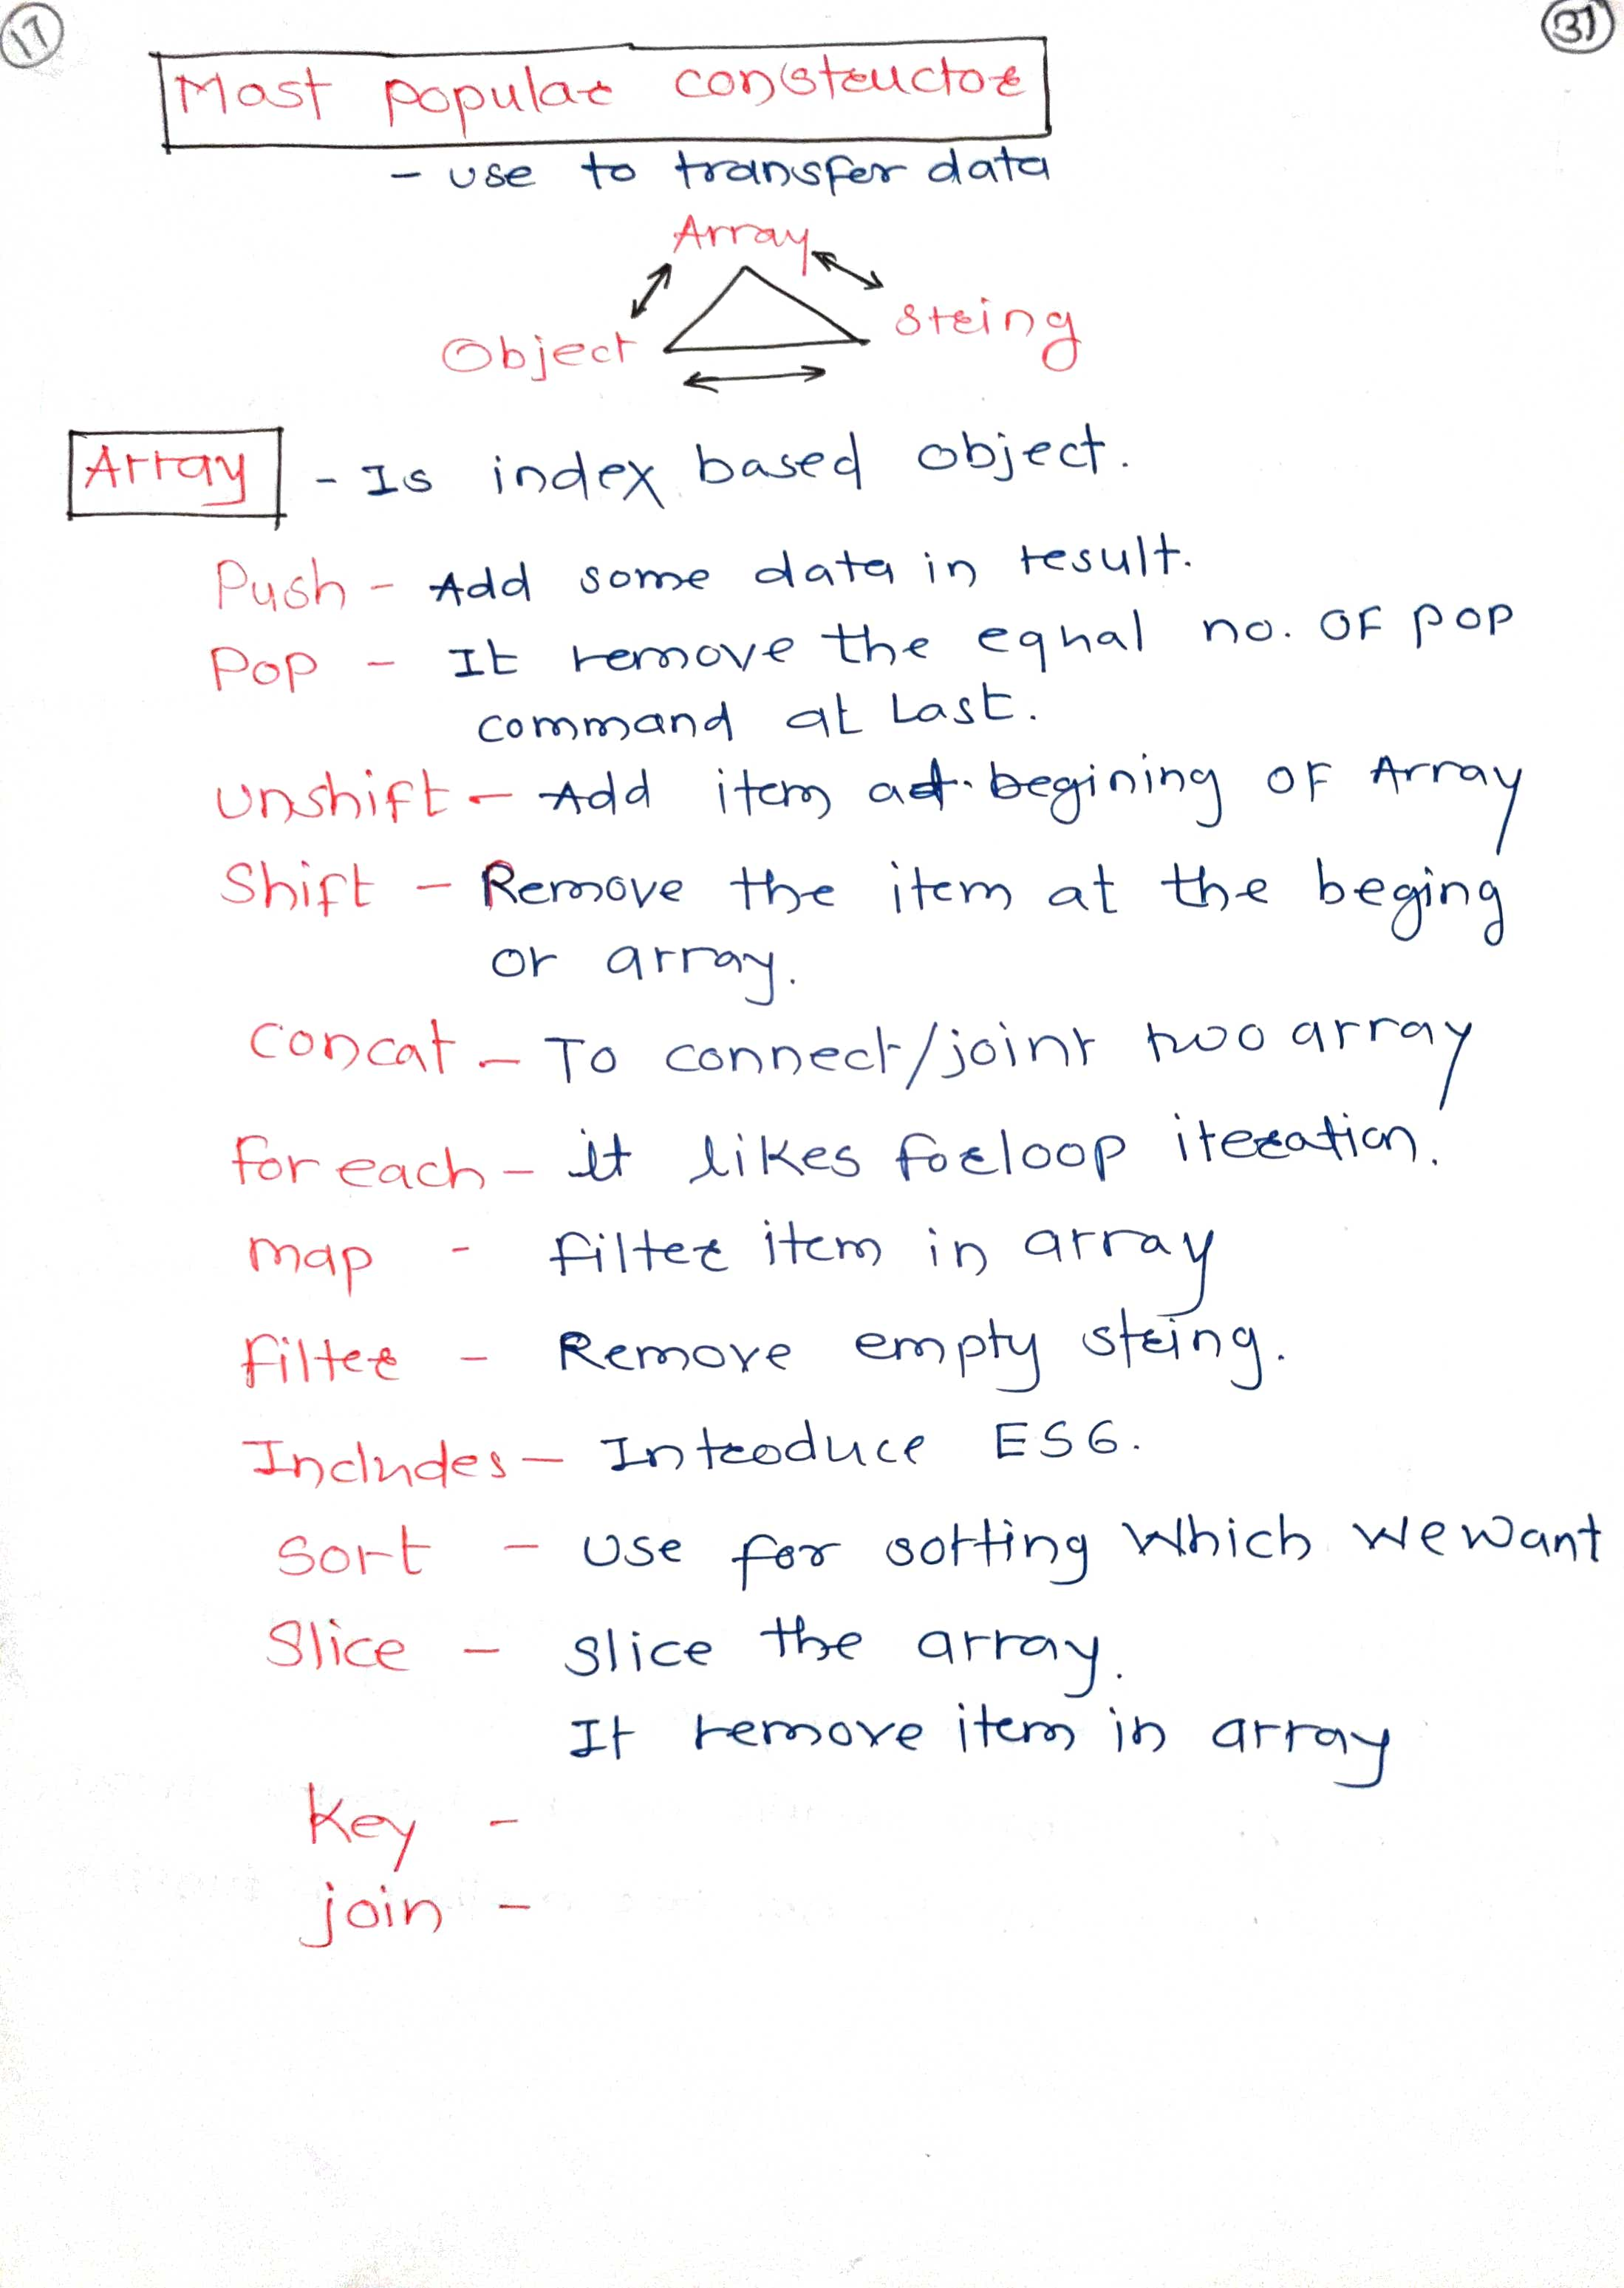 17
31
Most popular constructor
- use to transfer data
Array
String
Object
Array - Is index based object.
Push - Add some data in result.
Pop - It remove the equal no. OF pop
command at Last.
Unshift - Add item at begining OF Array
Shift - Remove the item at the beging
or array.
Concat - To connect/joint two array
for each - it likes forloop iteration.
map - filter item in array
filter - Remove empty string.
Includes - Introduce ES6.
Sort - Use for sotting Which we want
Slice - slice the array.
It remove item in array
Key -
join -